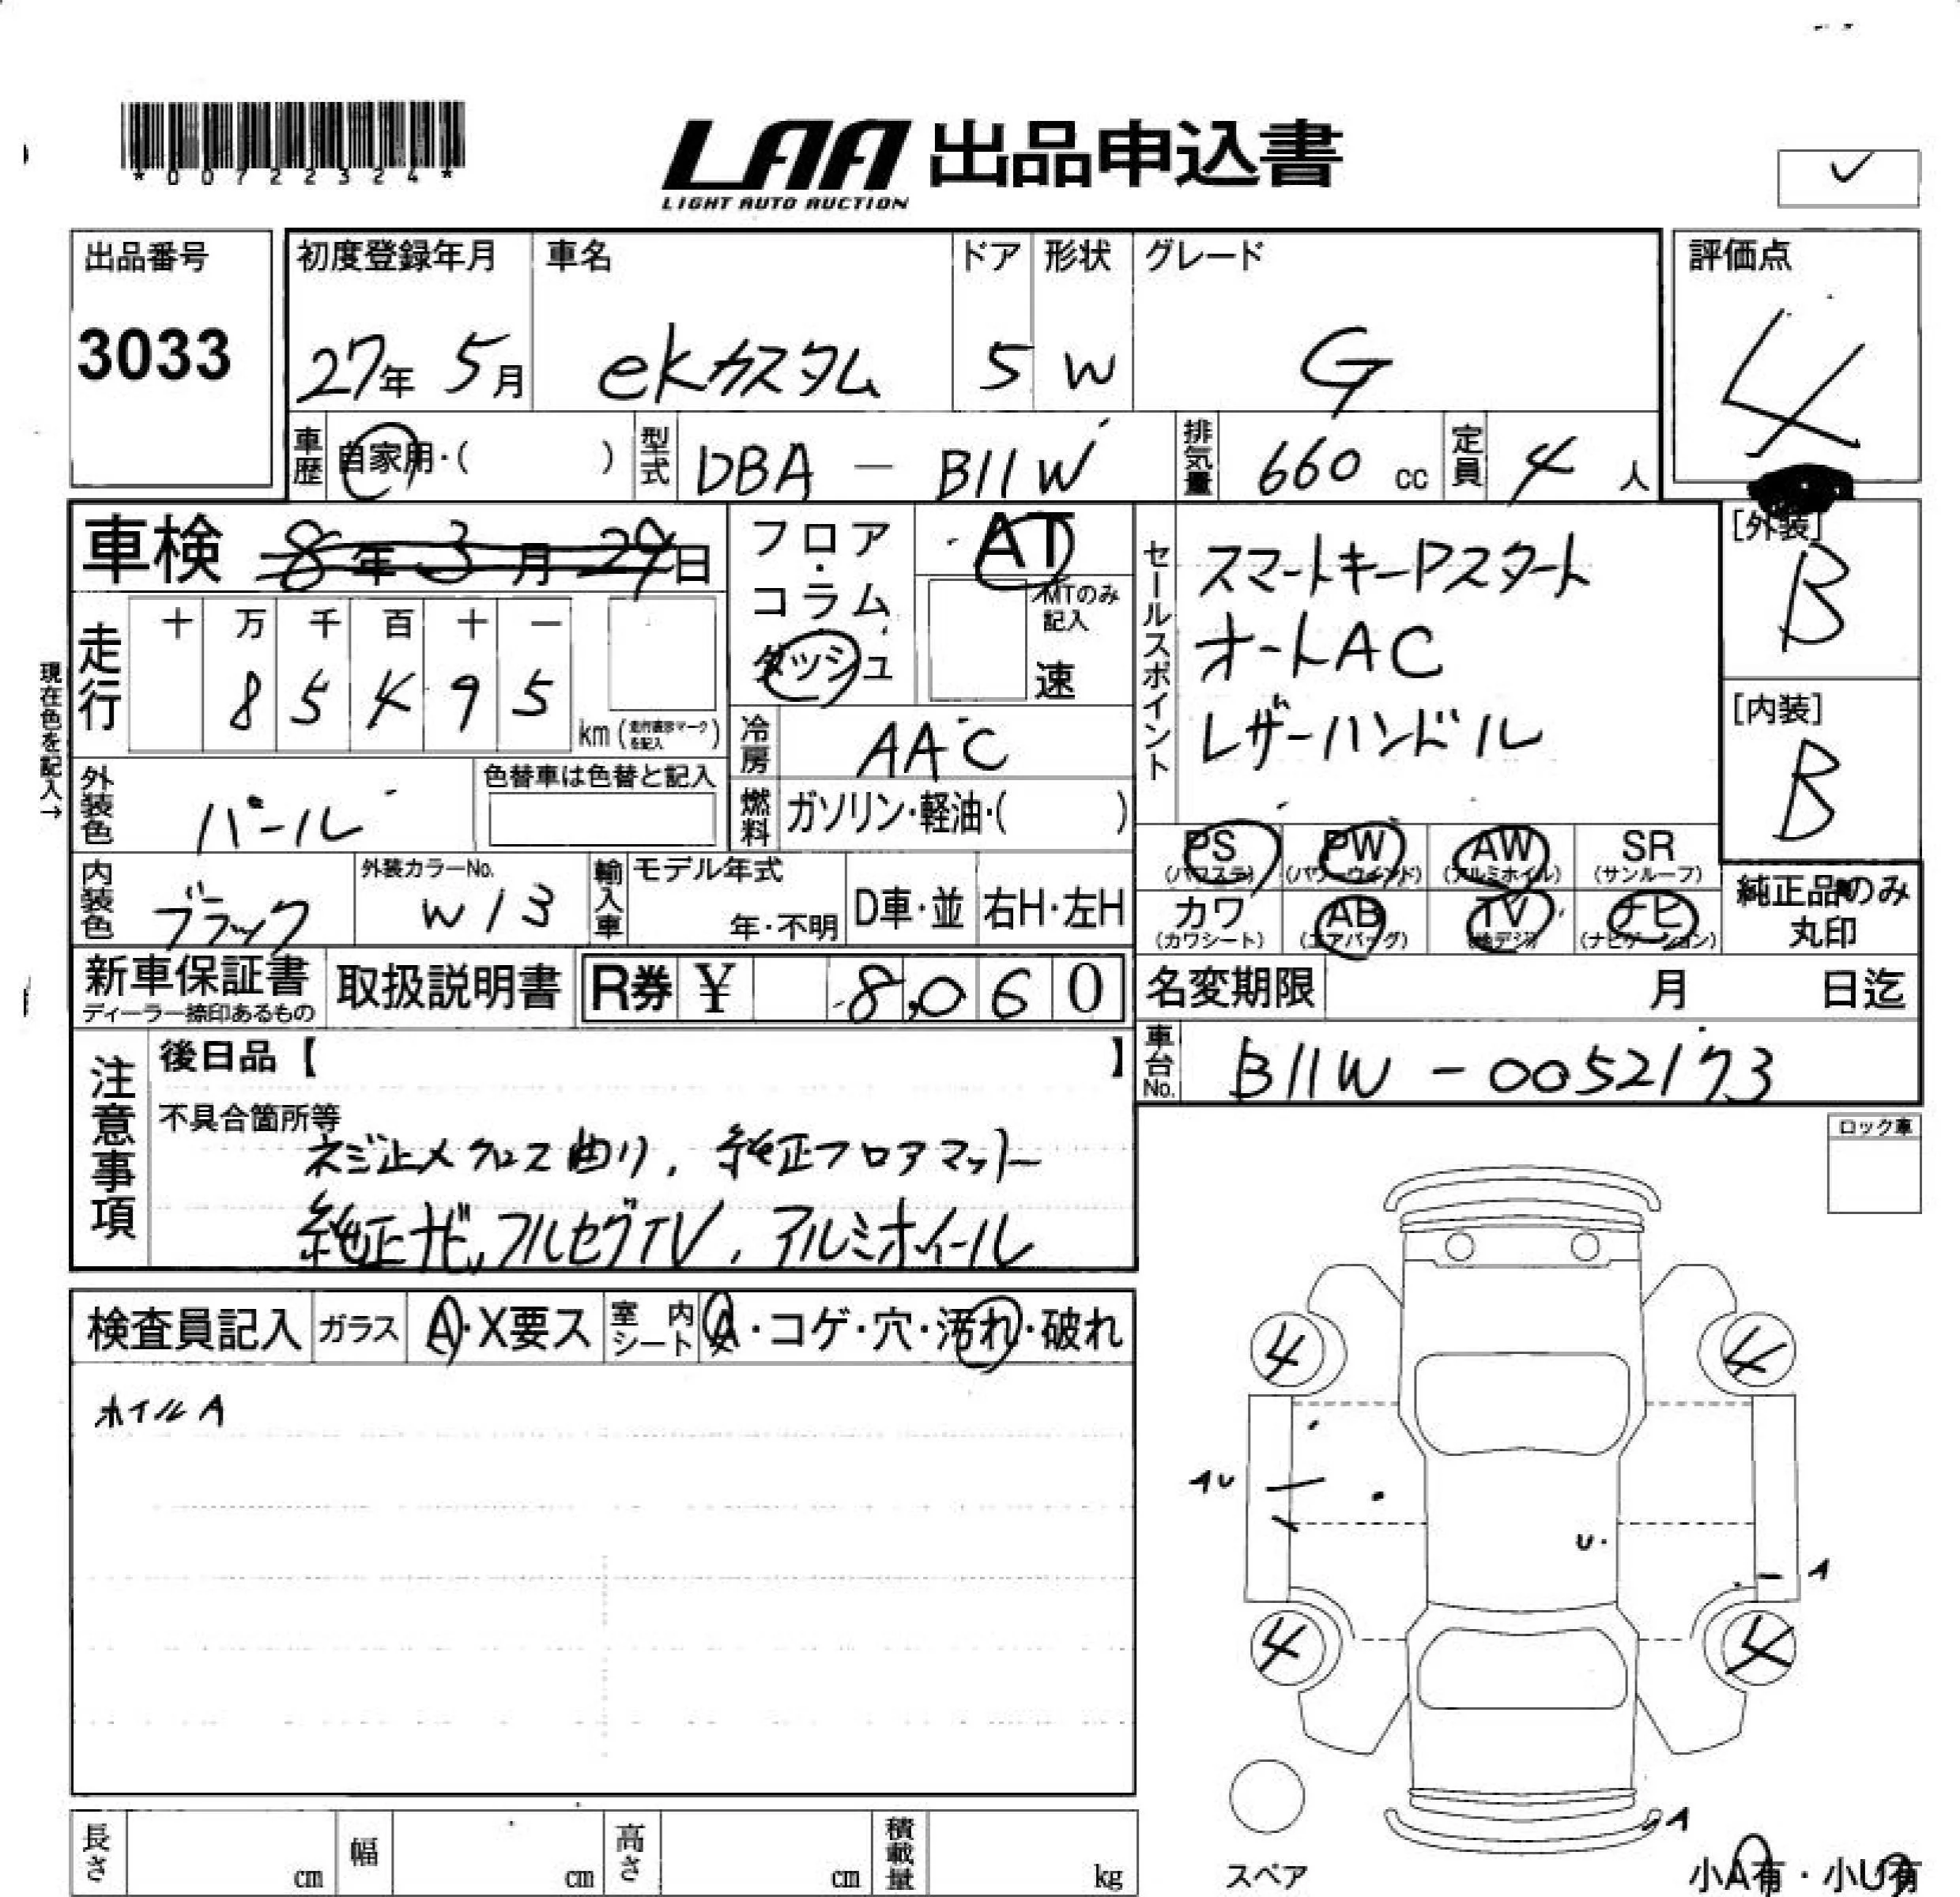 *00722324*
LAA 出品申込書
LIGHT AUTO AUCTION
出品番号 初度登録年月 車名 ドア 形状 グレード 評価点
3033 27年 5月 ekカスタム 5 W G 4
車歴 自家用・( ) 型式 DBA - B11W 排気量 660 cc 定員 4 人
車検 8年 3月 29日
フロア・コラム ダッシュ AT
MTのみ記入 速
セールスポイント スマートキーPスタート
オートAC
レザーハンドル
[外装] B
[内装] B
現在色を記入→
走行 十 万 千 百 十 一
8 5 4 9 5 km (走行表示マークを記入)
冷房 AAC
外装色 パール 色替車は色替と記入
燃料 ガソリン・軽油・( )
PS (パワステ) PW (パワーウィンド) AW (アルミホイル) SR (サンルーフ)
カワ (カワシート) AB (エアバッグ) TV (地デジ) ナビ (ナビゲーション)
純正品のみ丸印
内装色 ブラック 外装カラーNo. W13 輸入車 モデル年式 年・不明 D車・並 右H・左H
新車保証書 ディーラー捺印あるもの 取扱説明書 R券 ¥ 8,060
名変期限 月 日迄
車台No. B11W - 0052173
注意事項 後日品【 】
不具合箇所等
ネジ止メクロス曲り, 純正フロアマット
純正ナビ, フルセグTV, アルミホイール
ロック車
検査員記入 ガラス A・X要ス 室内シート A・コゲ・穴・汚れ・破れ
ホイルA
4 4
AU
U
A
4 4
A
スペア
小A有・小U有
長さ cm 幅 cm 高さ cm 積載量 kg